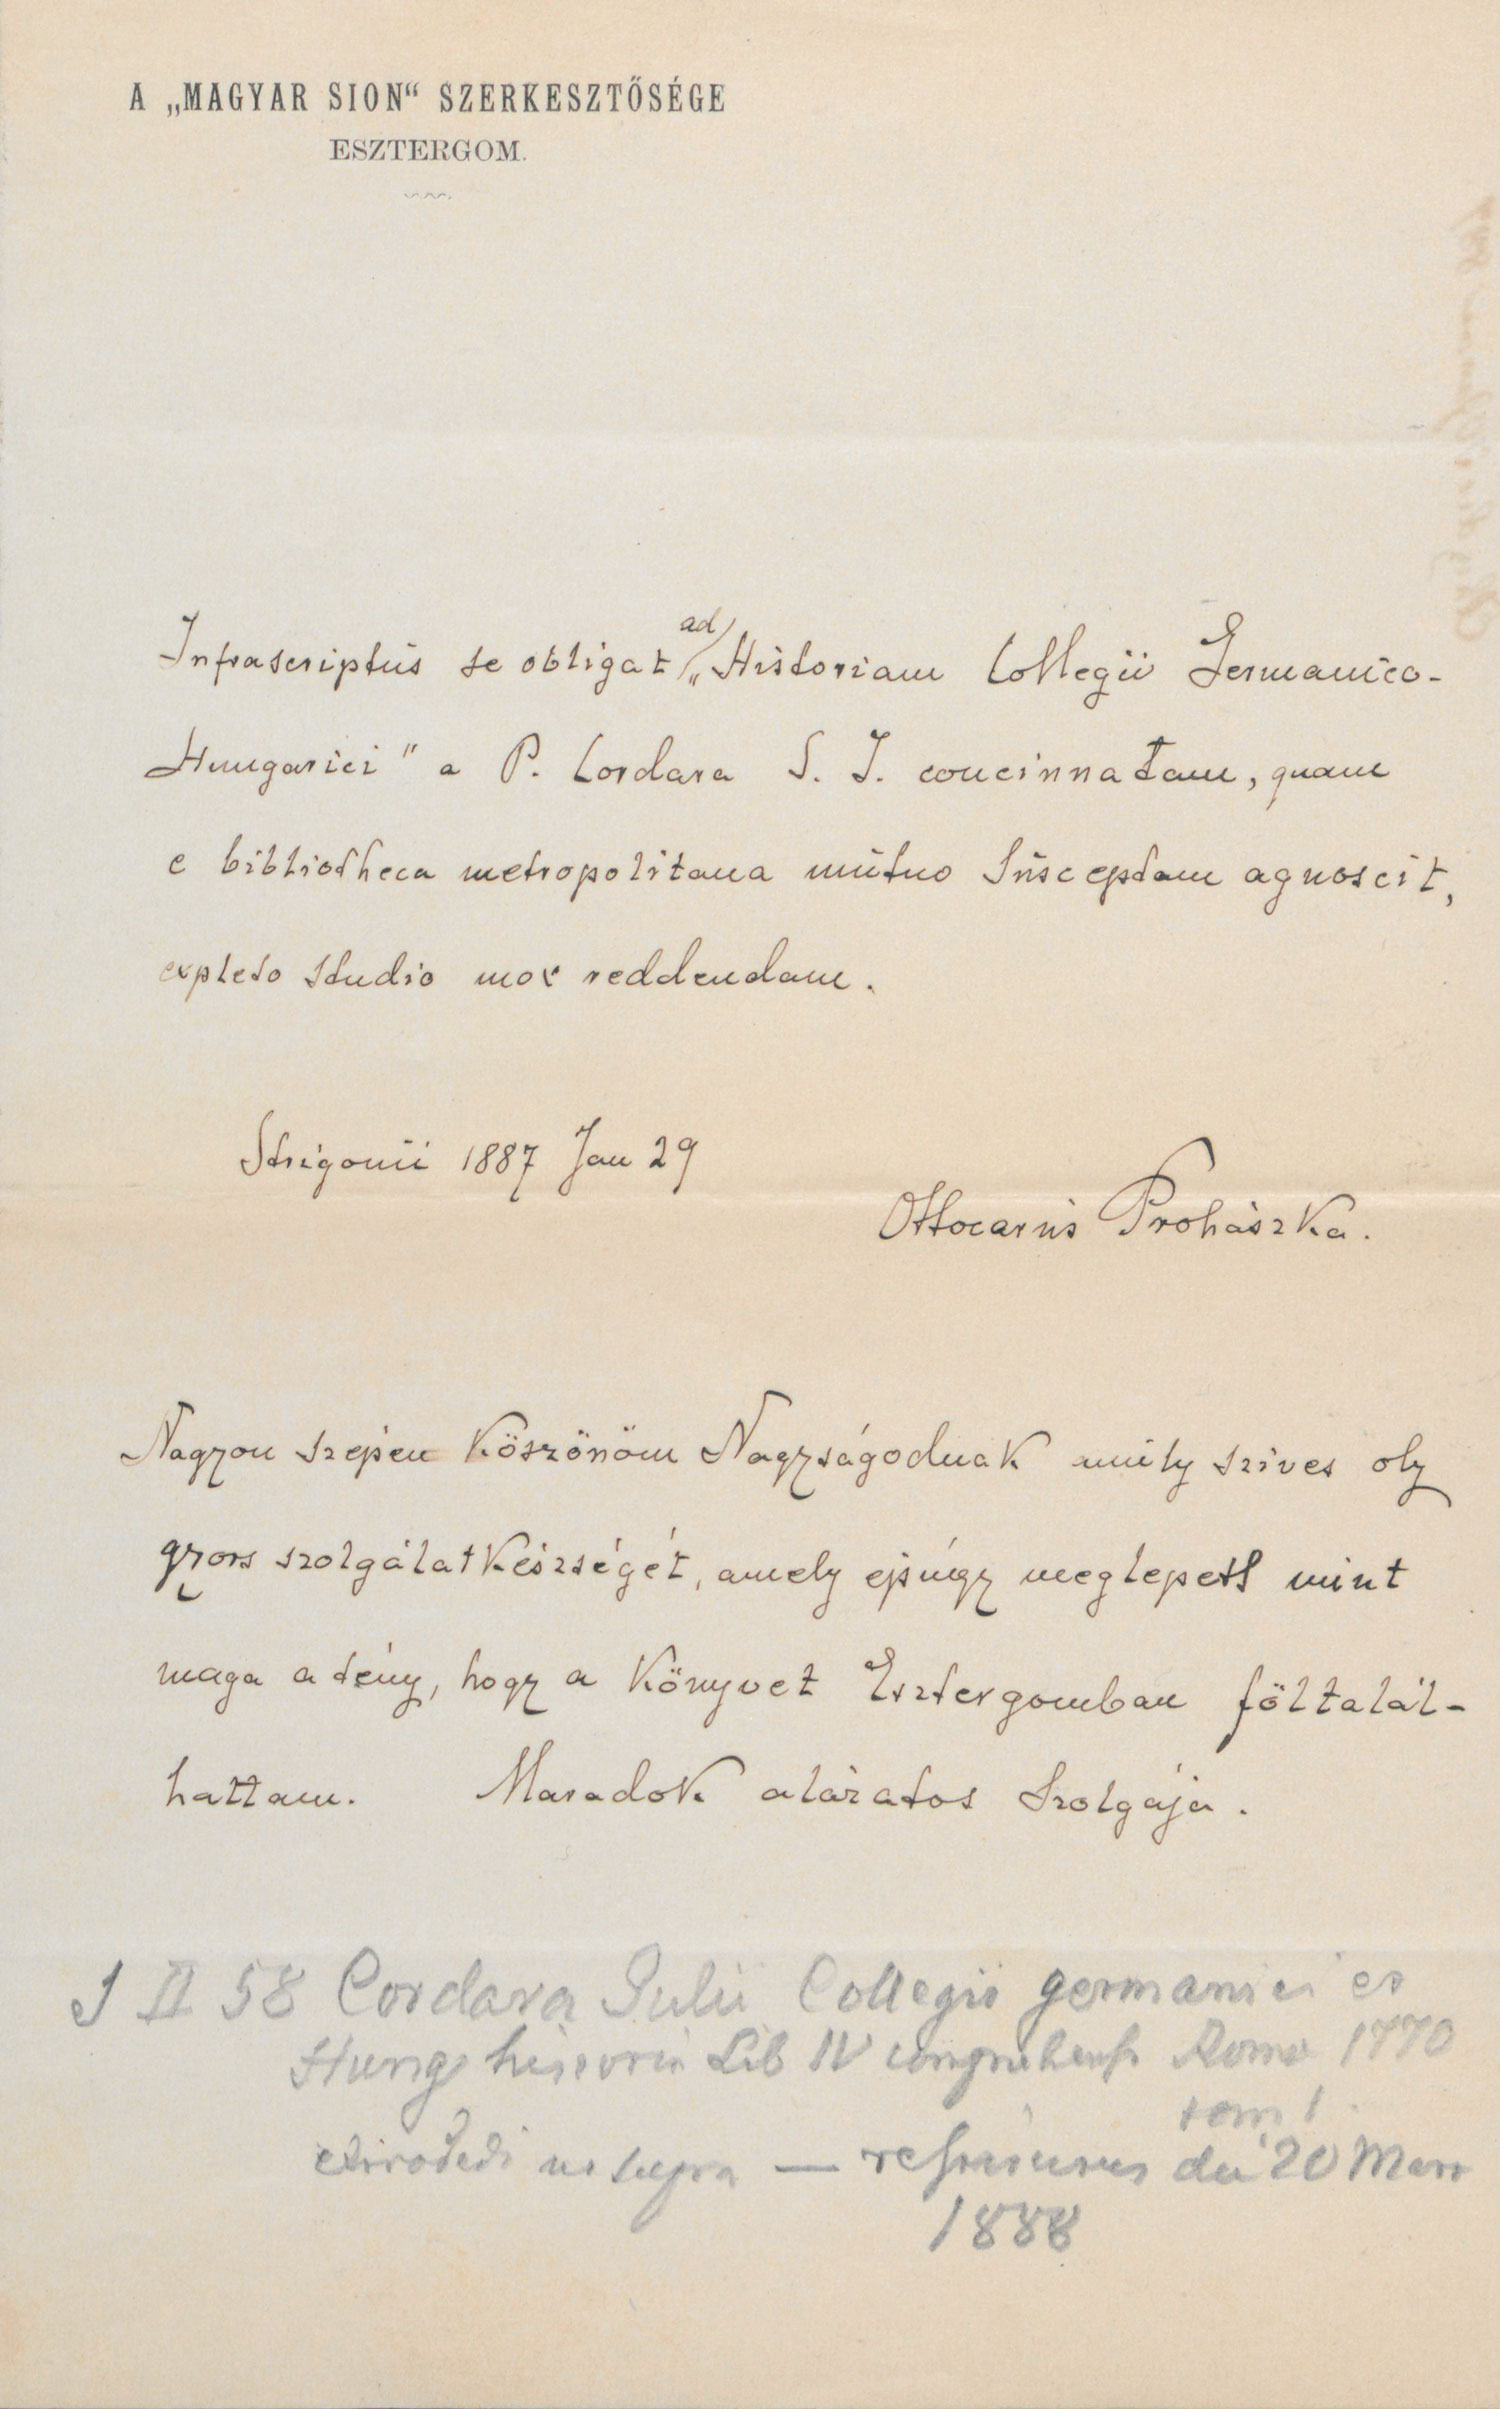 A „MAGYAR SION“ SZERKESZTŐSÉGE
ESZTERGOM.
Infrascriptus se obligat ad „Historiam Collegii Germanico-
Hungarici" a P. Cordara S. J. concinnatam, quam
e bibliotheca metropolitana mutuo susceptam agnoscit,
expleto studio mox reddendam.
Strigonii 1887 Jan 29
Ottocarus Prohászka.
Nagyon szépen köszönöm Nagyságodnak amily szives oly
gyors szolgálatkészségét, amely épúgy meglepett mint
maga a tény, hogy a könyvet Esztergomban föltalál-
hattam. Maradok alázatos szolgája.
II 58 Cordara Julii Collegii germanici et
Hung historia Lib IV Romae 1770
tom 1.
ut supra — 20 Mart
1888